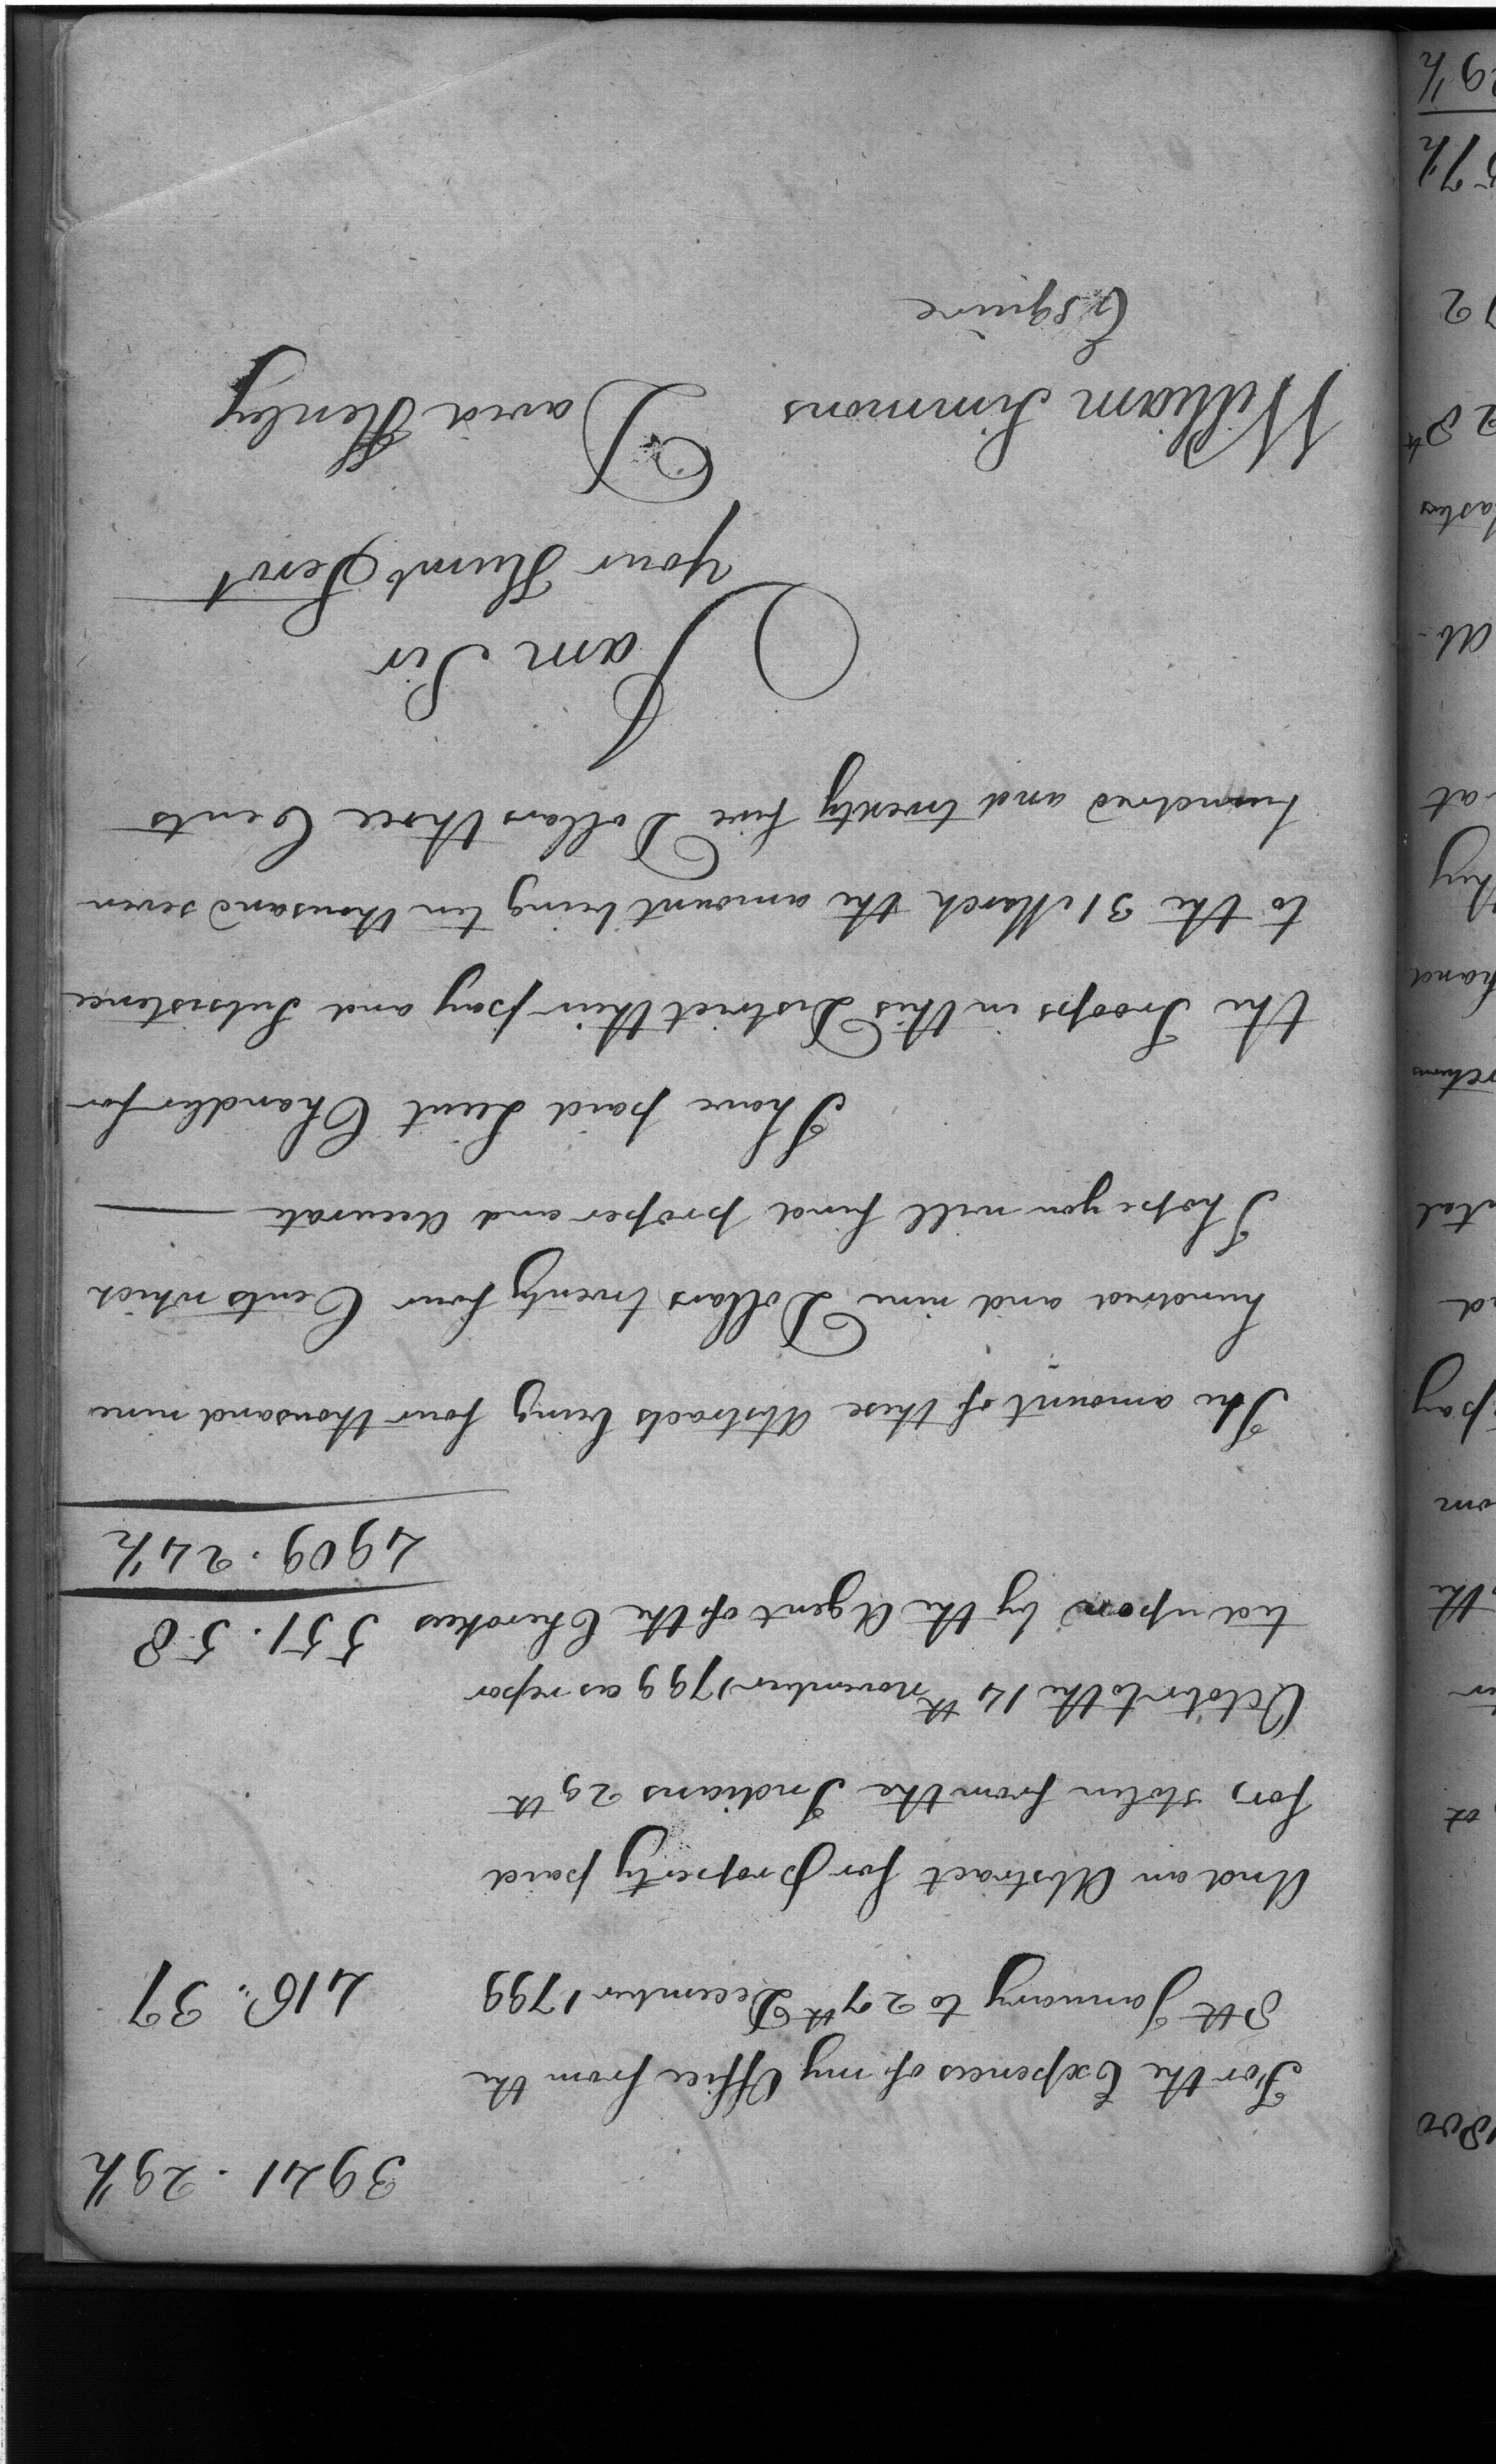 3941.29½
For the Expences of my Office from the
8th January to 27th December 1799 416.37
And an Abstract for property paid
for, stolen from the Indians 29th
October to the 14th november 1799 as repor
ted upon by the Agent of the Cherokees 551.58
4909.24½
The amount of these Abstracts being four thousand nine
hundred and nine Dollars twenty four Cents which
I hope you will find proper and accurate
I have paid Lieut Chandler for
the Troops in this District their pay and Subsistence
to the 31 March the amount being ten thousand seven
hundred and twenty five Dollars three Cents
I am Sir
your Humt Servt
David Henley
William Simmons
Esquire